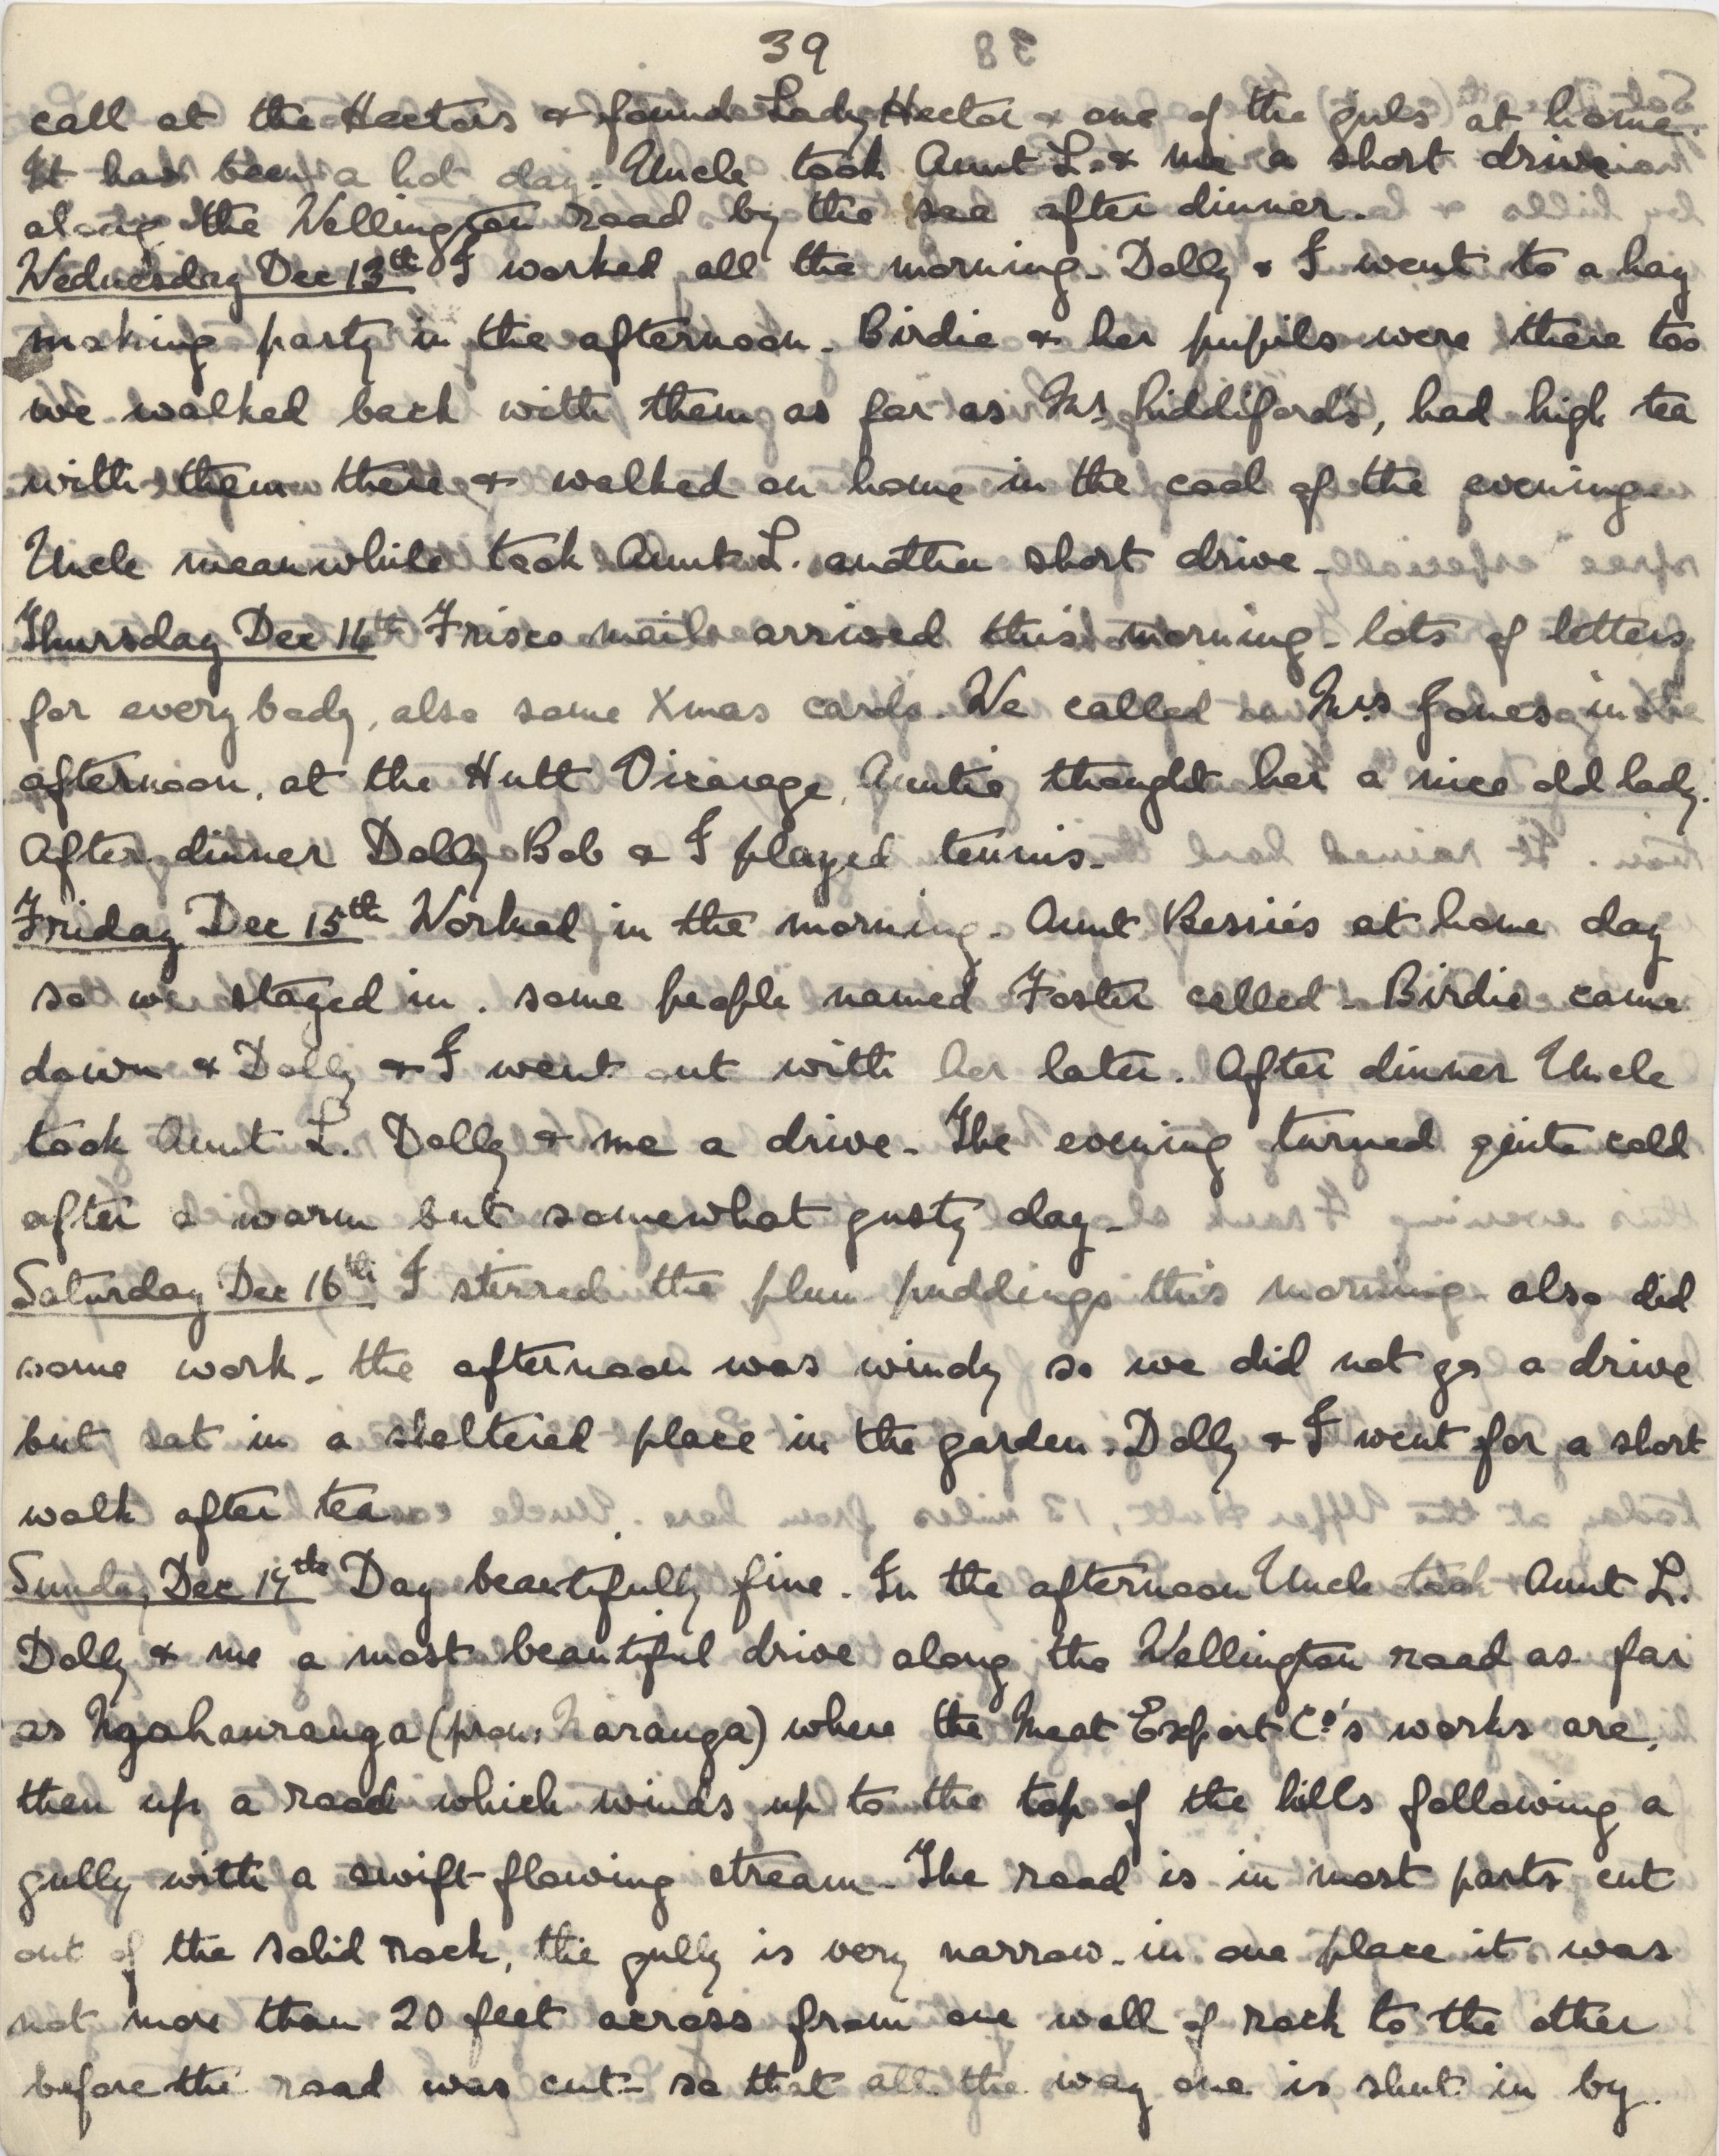 39
call at the Hectors & found Lady Hector & one of the girls at home.
It has been a hot day. Uncle took Aunt L. & me a short drive
along the Wellington road by the sea after dinner.
Wednesday Dec 13th I worked all the morning - Dolly & I went to a hay
making party in the afternoon - Birdie & her pupils were there too
we walked back with them as far as Mrs Riddiford's, had high tea
with them there & walked on home in the cool of the evening -
Uncle meanwhile took Aunt L. another short drive -
Thursday Dec 14th Frisco mail arrived this morning - lots of letters
for everybody, also some Xmas cards. We called on Mrs Jones in the
afternoon, at the Hutt Vicarage, Auntie thought her a nice old lady.
After dinner Dolly Bob & I played tennis -
Friday Dec 15th Worked in the morning - Aunt Bessie's at home day
so we stayed in . some people named Foster called - Birdie came
down & Dolly & I went out with her later. After dinner Uncle
took Aunt L. Dolly & me a drive - The evening turned quite cold
after a warm but somewhat gusty day -
Saturday Dec 16th I stirred the plum puddings this morning also did
some work - the afternoon was windy so we did not go a drive
but sat in a sheltered place in the garden. Dolly & I went for a short
walk after tea
Sunday, Dec 17th Day beautifully fine. In the afternoon Uncle took Aunt L.
Dolly & me a most beautiful drive along the Wellington road as far
as Ngahauranga (pron: Naranga) where the Meat Export Co's works are,
then up a road which winds up to the top of the hills following a
gully with a swift flowing stream - The road is in most parts cut
out of the solid rock, the gully is very narrow - in one place it was
not more than 20 feet across from one wall of rock to the other
before the road was cut - so that all the way one is shut in by